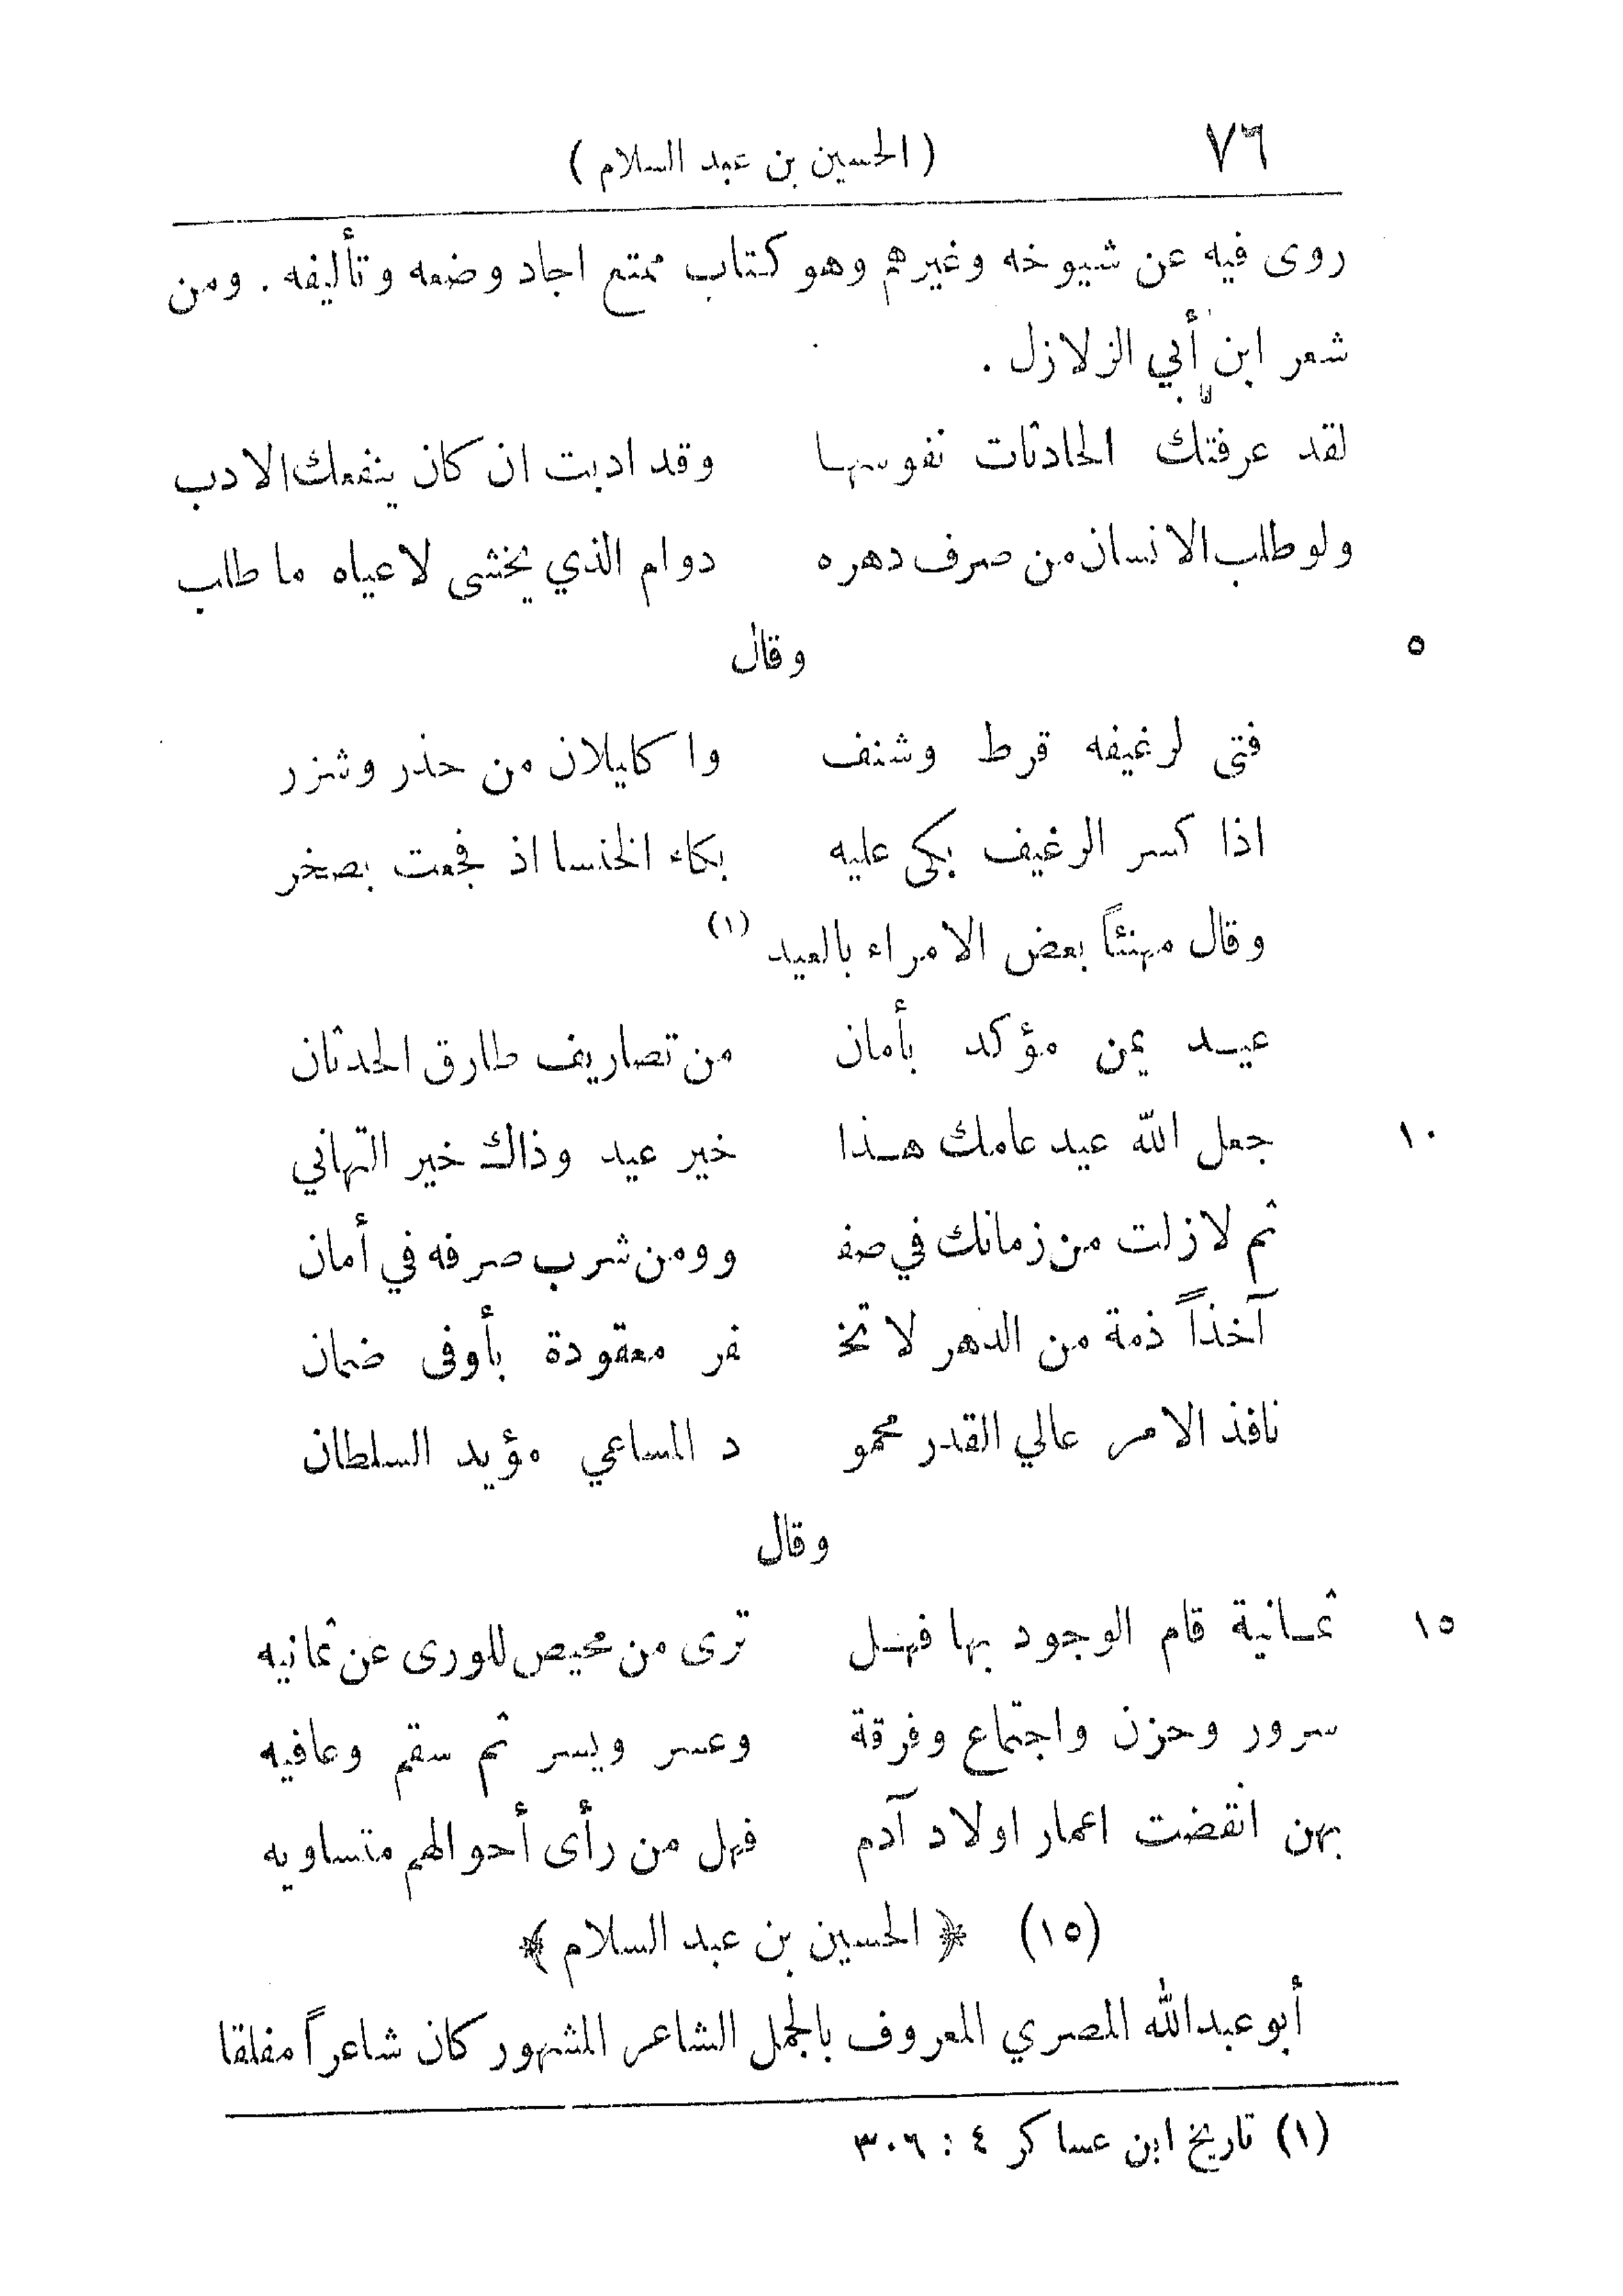 ٧٦ ( الحسين بن عبد السلام )
روى فيه عن شيوخه وغيرهم وهو كتاب ممتع اجاد وضعه وتأليفه . ومن
شعر ابن أبي الزلازل .
لقد عرفتك الحادثات نفوسها وقد ادبت ان كان ينفعك الادب
ولو طلب الانسان من صرف دهره دوام الذي يخشى لاعياه ما طلب
٥ وقال
فتى لرغيفه قرط وشنف واكايلان من حذر وشزر
اذا كسر الرغيف بكى عليه بكاء الخنسا اذ فجعت بصخر
وقال مهنئاً بعض الامراء بالعيد (١)
عيد يمن مؤكد بأمان من تصاريف طارق الحدثان
١٠ جعل الله عيد عامك هذا خير عيد وذاك خير التهاني
ثم لازلت من زمانك في صفـ ـو ومن شرب صرفه في أمان
آخذاً ذمة من الدهر لا تخـ ـفر معقودة بأوفى ضمان
نافذ الامر عالي القدر محمو د المساعي مؤيد السلطان
وقال
١٥ ثمانية قام الوجود بها فهل ترى من محيص للورى عن ثمانيه
سرور وحزن واجتماع وفرقة وعسر ويسر ثم سقم وعافيه
بهن انقضت اعمار اولاد آدم فهل من رأى أحوالهم متساويه
(١٥) ﴿ الحسين بن عبد السلام ﴾
أبو عبدالله المصري المعروف بالجمل الشاعر المشهور كان شاعراً مفلقا
(١) تاريخ ابن عساكر ٤ : ٣٠٦